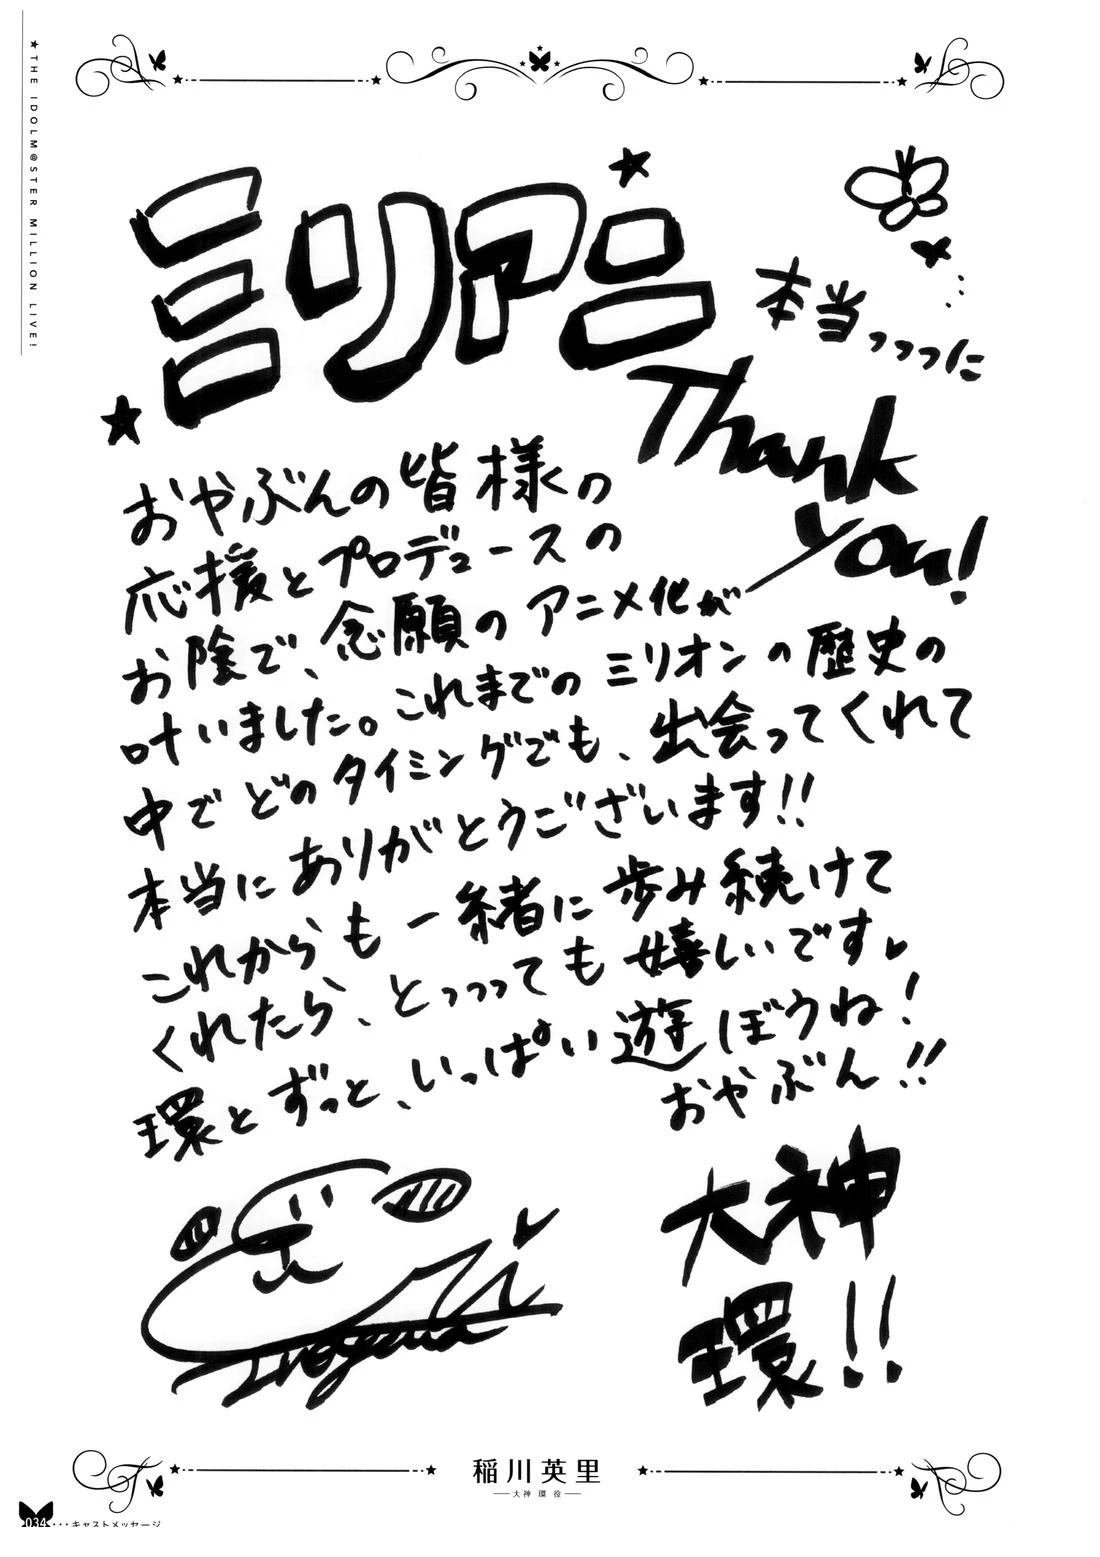 ★THE IDOLM@STER MILLION LIVE!
ミリアニ
本当っっっに
Thank
you!
おやぶんの皆様の
応援とプロデュースの
お陰で、念願のアニメ化が
叶いました。これまでのミリオンの歴史の
中でどのタイミングでも、出会ってくれて
本当にありがとうございます!!
これからも一緒に歩み続けて
くれたら、とっっっても嬉しいです
環とずっと、いっぱい遊ぼうね!
おやぶん!!
Inagawa
大神
環!!
稲川英里
大神 環 役
034・・・キャストメッセージ